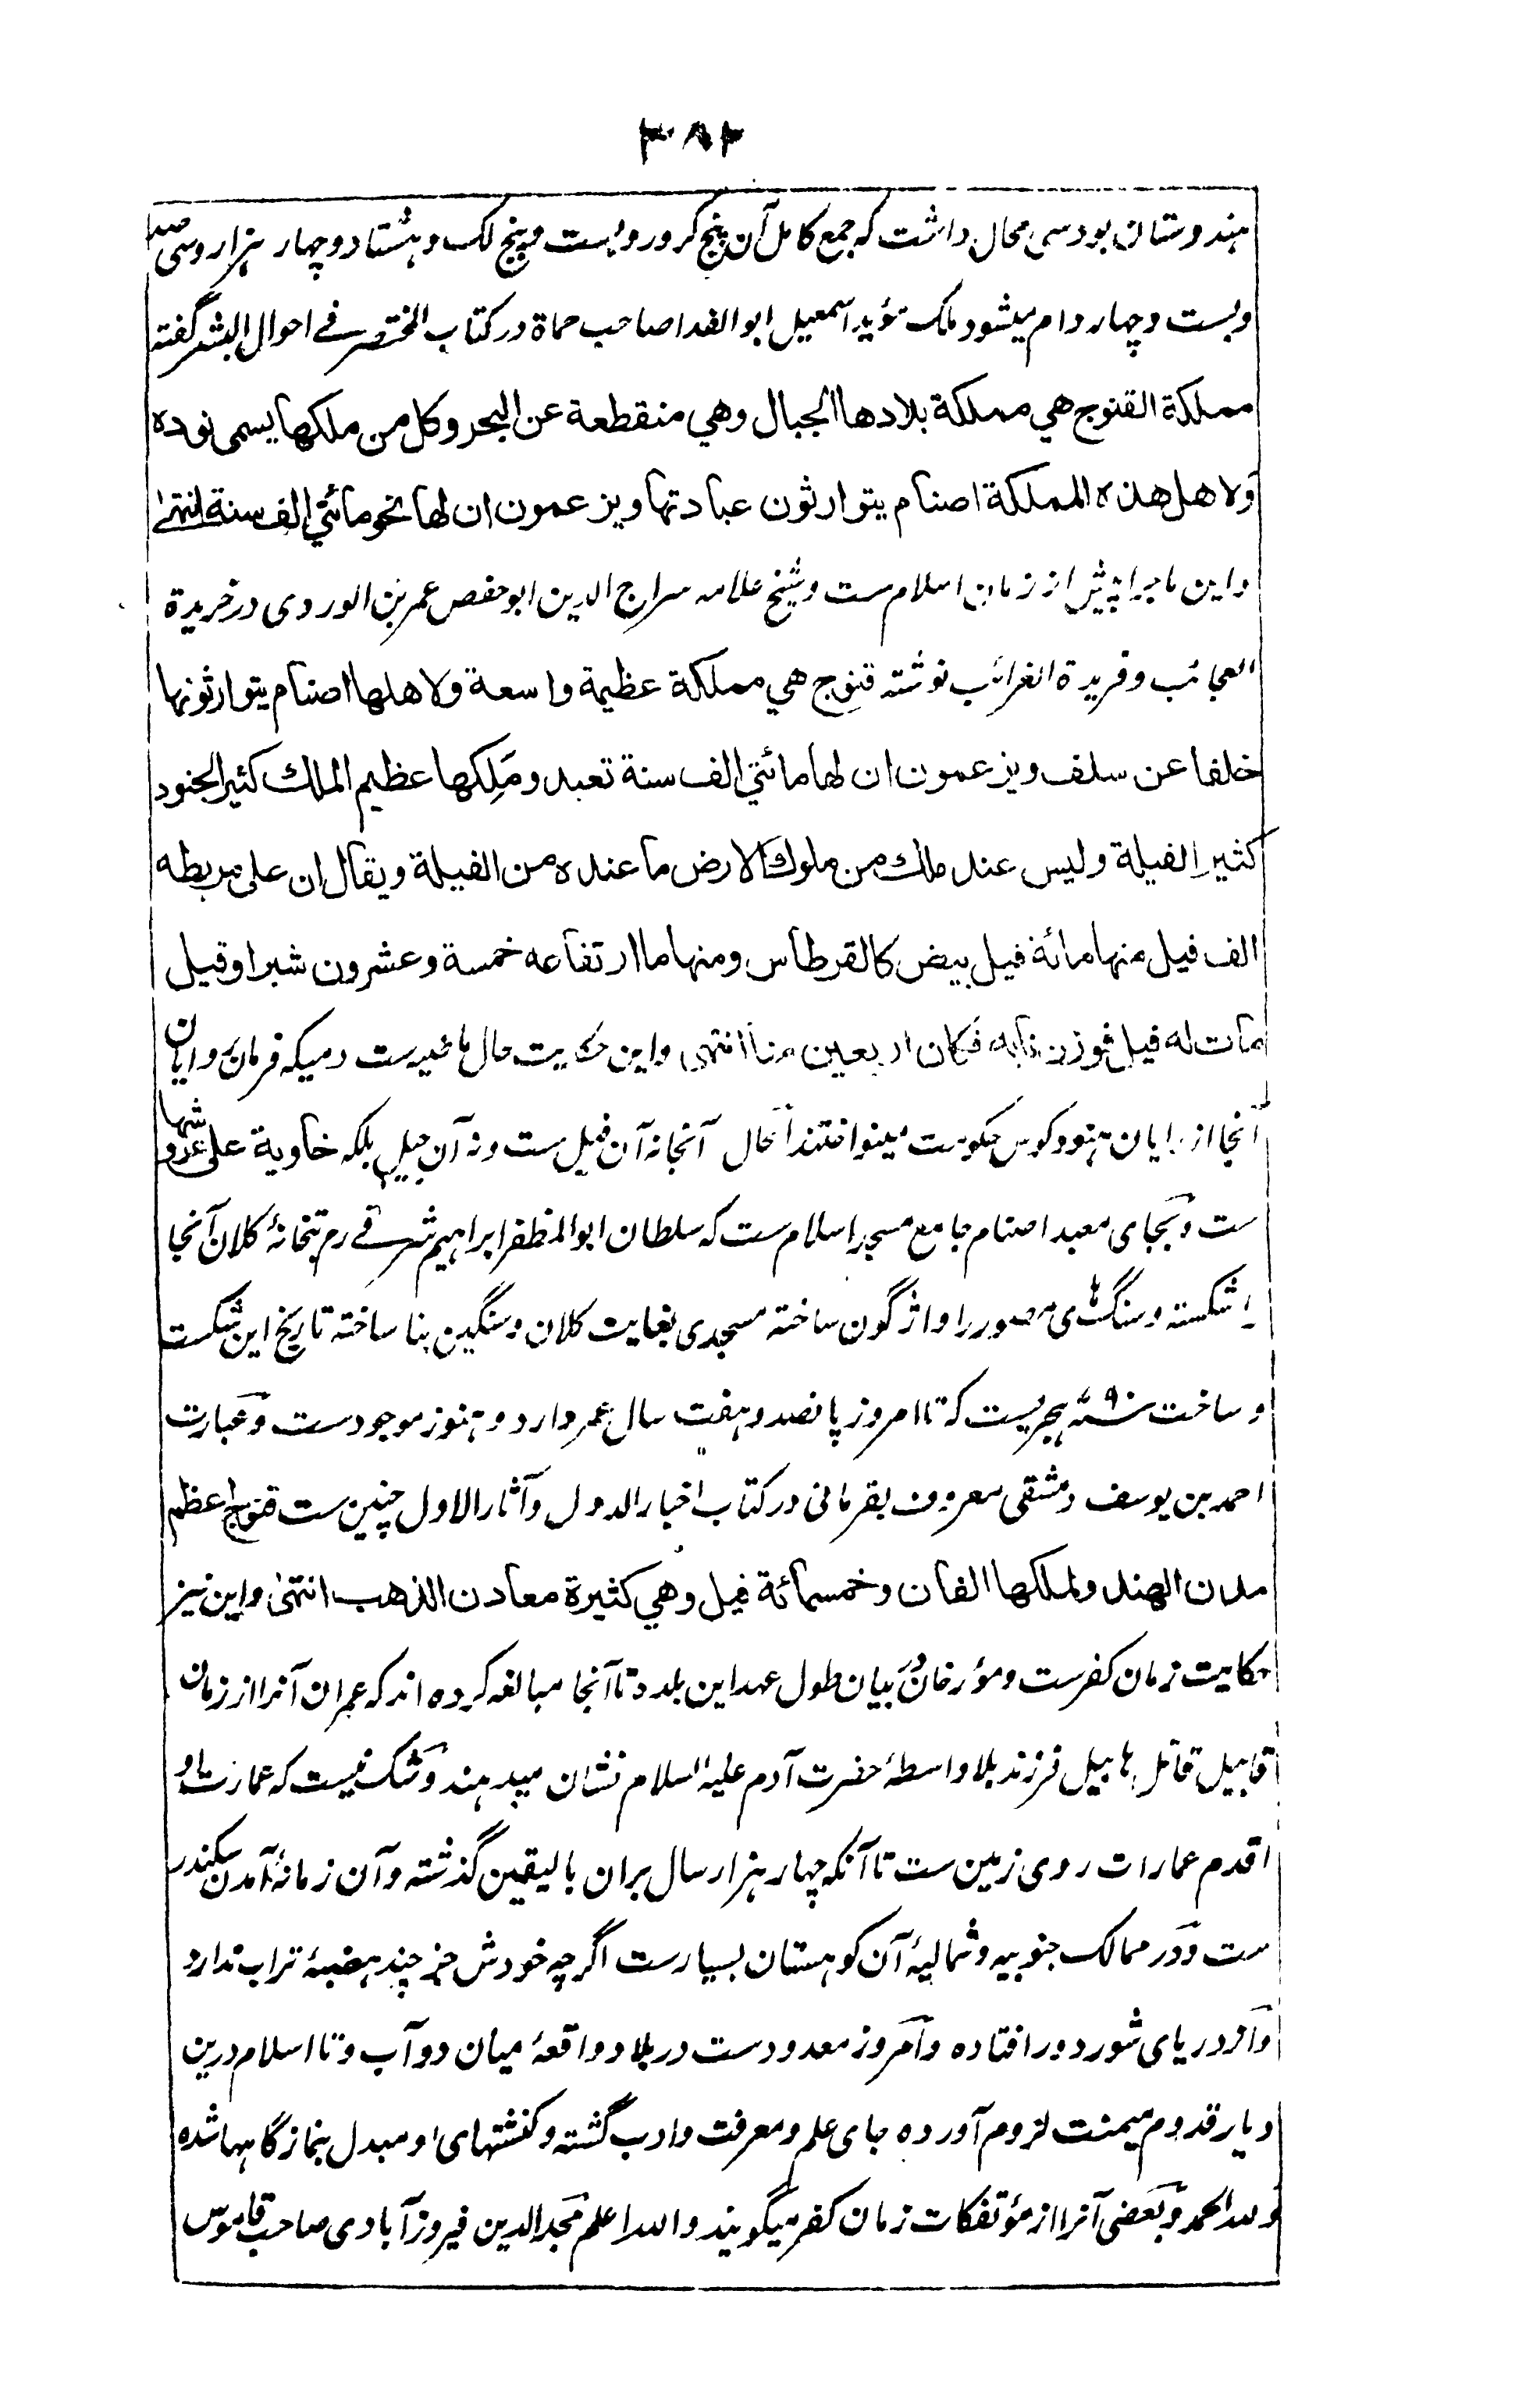 ۳۸۲
هندوستان بود سی محال داشت که جمع کامل آن پنج کرور و بست و پنج لک و هشتاد و چهار هزار و سی صد
و بست و چهار دام میشود ملک مؤید اسمعیل ابو الفدا صاحب حماة در کتاب المختصر فے احوال البشر گفته
مملكة القنوج هي مملكة بلادها الجبال وهي منقطعة عن البحر وكل من ملكها يسمى نوده
ولاهل هذه المملكة اصنام يتوارثون عبادتها ويزعمون ان لها نحو مائتي الف سنة انتهى
و این ماجرا پیش از زمان اسلام ست و شیخ علامه سراج الدین ابو حفص عمر بن الوردی در خریدة
العجائب و فریدة الغرائب نوشته قنوج هي مملكة عظيمة واسعة ولاهلها اصنام يتوارثونها
خلفا عن سلف ويزعمون ان لها مائتي الف سنة تعبد ومَلِكها عظيم الملك كثير الجنود
كثير الفيلة وليس عند ملك من ملوك الارض ما عنده من الفيلة ويقال ان على مربطه
الف فيل منها مائة فيل بيض كالقرطاس ومنها ما ارتفاعه خمسة وعشرون شبرا وقيل
مات له فيل فوزن نابه فكان اربعين منا انتهى و این حکایت حال ماضیه ست دمیکه فرمان روایان
آنجا از رایان هنود کوس حکومت مینواختند الحال آنجا نه آن فیل ست و نه آن جیل بلکه خاوية على عروشها
ست و بجای معبد اصنام جامع مسجد اسلام ست که سلطان ابو المظفر ابراهیم شرقے رح بتخانۀ کلان آنجا
را شکسته و سنگهای مصور را واژگون ساخته مسجدی بغایت کلان و سنگین بنا ساخته تاریخ این شکست
و ساخت سنه هجریست که تا امروز پانصد و هفت سال عمر دارد و هنوز موجود ست و عبارت
احمد بن یوسف دمشقی معروف بقرمانی در کتاب اخبار الدول و آثار الاول چنین ست قنوج اعظم
مدن الهند ولملكها الفان وخمسمائة فيل وهي كثيرة معادن الذهب انتهى و این نیز
حکایت زمان کفر ست و مؤرخان در بیان طول عهد این بلد تا آنجا مبالغه کرده اند که عمران آنرا از زمان
قابیل قاتل هابیل فرزند بلا واسطۀ حضرت آدم علیه السلام نشان میدهند و شک نیست که عمارت او
اقدم عمارات روی زمین ست تا آنکه چهار هزار سال بران بالیقین گذشته و آن زمانۀ آمدن سکندر
ست و در ممالک جنوبیه و شمالیۀ آن کوهستان بسیار ست اگر چه خودش جز چند هضبۀ تراب ندارد
و از دریای شور دور افتاده و امروز معدود ست در بلاد واقعۀ میان دو آب و تا اسلام درین
دیار قدوم میمنت لزوم آورده جای علم و معرفت و ادب گشته و کنشتهای او مبدل بنمازگاهها شده
و لله الحمد و بعضی آنرا از مؤتفکات زمان کفر میگویند والله اعلم مجد الدین فیروزآبادی صاحب قاموس